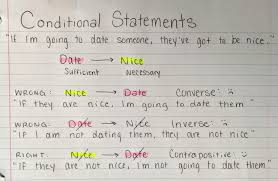 Conditional Statements
"If I'm going to date someone, they've got to be nice."
Date → Nice
Sufficient Necessary
WRONG: Nice → Date Converse: :(
"IF they are nice, I'm going to date them"
WRONG: Date → Nice Inverse: :(
"IF I am not dating them, they are not nice"
RIGHT: Nice → Date Contrapositive: :)
"IF they are not nice, I'm not going to date them."